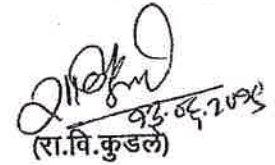 १३.०६.२०१९
(रा.वि.कुडले)